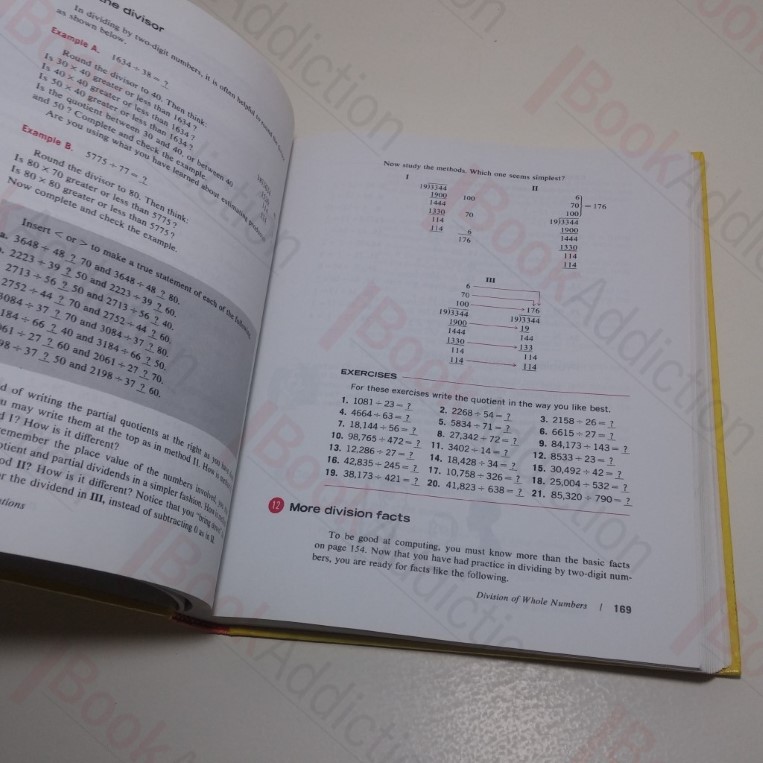 the divisor
In dividing by two-digit numbers, it is often helpful to
as shown below.
Example A. 1634 ÷ 38 = ?
Round the divisor to 40. Then think:
Is 30 × 40 greater or less than 1634?
Is 40 × 40 greater or less than 1634?
Is 50 × 40 greater or less than 1634?
Is the quotient between 30 and 40, or between 40
and 50? Complete and check the example.
Are you using what you have learned about estimating
Example B. 5775 ÷ 77 = ?
Round the divisor to 80. Then think:
Is 80 × 70 greater or less than 5775?
Is 80 × 80 greater or less than 5775?
Now complete and check the example.
Insert < or > to make a true statement of each of the following.
a. 3648 ÷ 48 ? 70 and 3648 ÷ 48 ? 80.
2223 ÷ 39 ? 50 and 2223 ÷ 39 ? 60.
2713 ÷ 56 ? 50 and 2713 ÷ 56 ? 40.
2752 ÷ 44 ? 70 and 2752 ÷ 44 ? 60.
3084 ÷ 37 ? 70 and 3084 ÷ 37 ? 80.
184 ÷ 66 ? 40 and 3184 ÷ 66 ? 50.
61 ÷ 27 ? 60 and 2061 ÷ 27 ? 70.
98 ÷ 37 ? 50 and 2198 ÷ 37 ? 60.
d of writing the partial quotients at the right as you
u may write them at the top as in method II. How is
d I? How is it different?
emember the place value of the numbers involved, you
otient and partial dividends in a simpler fashion. How is
od II? How is it different? Notice that you "bring down"
r the dividend in III, instead of subtracting 0 as in II.
ations
Now study the methods. Which one seems simplest?
I
19)3344
1900 100
1444
1330 70
114
114 6
176
II
6
70 = 176
100
19)3344
1900
1444
1330
114
114
III
6
70
100 176
19)3344 19)3344
1900 19
1444 144
1330 133
114 114
114 114
EXERCISES
For these exercises write the quotient in the way you like best.
1. 1081 ÷ 23 = ? 2. 2268 ÷ 54 = ? 3. 2158 ÷ 26 = ?
4. 4664 ÷ 63 = ? 5. 5834 ÷ 71 = ? 6. 6615 ÷ 27 = ?
7. 18,144 ÷ 56 = ? 8. 27,342 ÷ 72 = ? 9. 84,173 ÷ 143 = ?
10. 98,765 ÷ 472 = ? 11. 3402 ÷ 14 = ? 12. 8533 ÷ 23 = ?
13. 12,286 ÷ 27 = ? 14. 18,428 ÷ 34 = ? 15. 30,492 ÷ 42 = ?
16. 42,835 ÷ 245 = ? 17. 10,758 ÷ 326 = ? 18. 25,004 ÷ 532 = ?
19. 38,173 ÷ 421 = ? 20. 41,823 ÷ 638 = ? 21. 85,320 ÷ 790 = ?
12 More division facts
To be good at computing, you must know more than the basic facts
on page 154. Now that you have had practice in dividing by two-digit num-
bers, you are ready for facts like the following.
Division of Whole Numbers / 169
BookAddiction